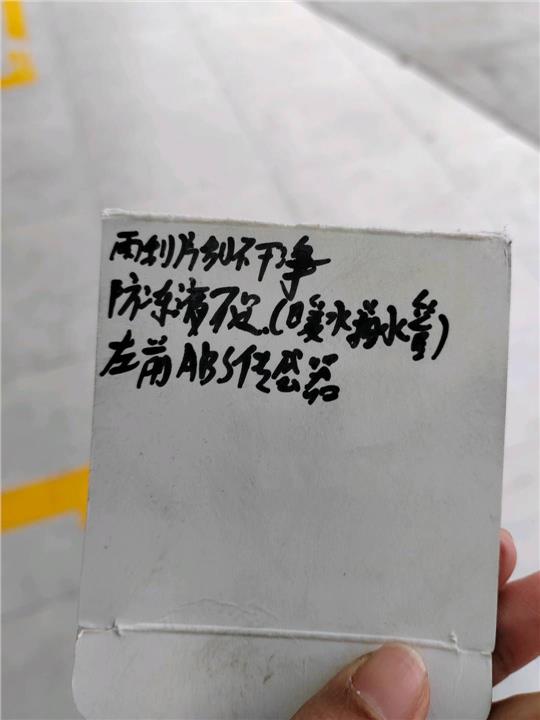 雨刮片刮不干净
防冻液不足.(喷水 水管)
左前ABS传感器